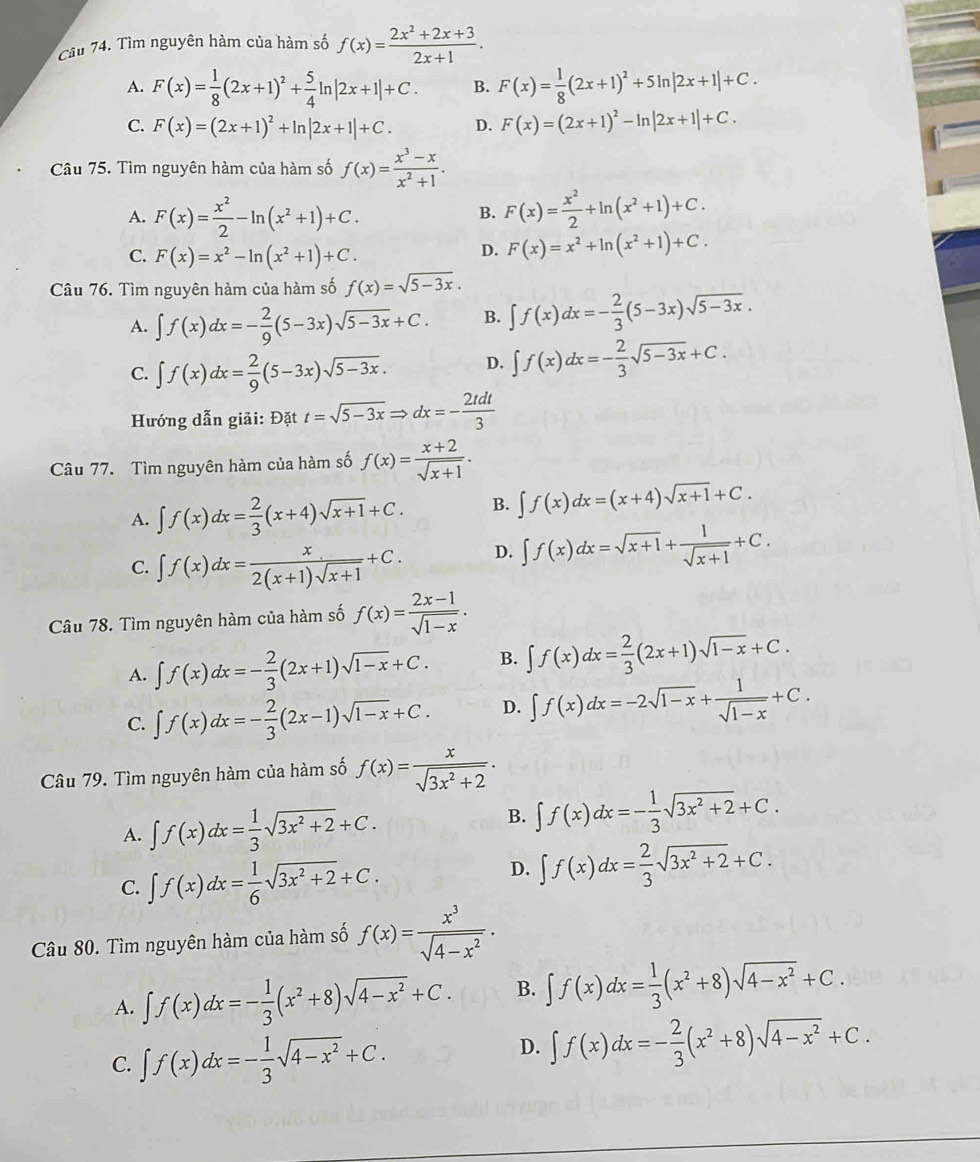 Câu 74. Tìm nguyên hàm của hàm số f(x) = \frac{2x^2+2x+3}{2x+1}.
A. F(x) = \frac{1}{8}(2x+1)^2 + \frac{5}{4}ln|2x+1| + C. B. F(x) = \frac{1}{8}(2x+1)^2 + 5ln|2x+1| + C.
C. F(x) = (2x+1)^2 + ln|2x+1| + C. D. F(x) = (2x+1)^2 - ln|2x+1| + C.
Câu 75. Tìm nguyên hàm của hàm số f(x) = \frac{x^3-x}{x^2+1}.
A. F(x) = \frac{x^2}{2} - ln(x^2+1) + C. B. F(x) = \frac{x^2}{2} + ln(x^2+1) + C.
C. F(x) = x^2 - ln(x^2+1) + C. D. F(x) = x^2 + ln(x^2+1) + C.
Câu 76. Tìm nguyên hàm của hàm số f(x) = \sqrt{5-3x}.
A. ∫f(x)dx = -\frac{2}{9}(5-3x)\sqrt{5-3x} + C. B. ∫f(x)dx = -\frac{2}{3}(5-3x)\sqrt{5-3x}.
C. ∫f(x)dx = \frac{2}{9}(5-3x)\sqrt{5-3x}. D. ∫f(x)dx = -\frac{2}{3}\sqrt{5-3x} + C.
Hướng dẫn giải: Đặt t = \sqrt{5-3x} ⇒ dx = -\frac{2tdt}{3}
Câu 77. Tìm nguyên hàm của hàm số f(x) = \frac{x+2}{\sqrt{x+1}}.
A. ∫f(x)dx = \frac{2}{3}(x+4)\sqrt{x+1} + C. B. ∫f(x)dx = (x+4)\sqrt{x+1} + C.
C. ∫f(x)dx = \frac{x}{2(x+1)\sqrt{x+1}} + C. D. ∫f(x)dx = \sqrt{x+1} + \frac{1}{\sqrt{x+1}} + C.
Câu 78. Tìm nguyên hàm của hàm số f(x) = \frac{2x-1}{\sqrt{1-x}}.
A. ∫f(x)dx = -\frac{2}{3}(2x+1)\sqrt{1-x} + C. B. ∫f(x)dx = \frac{2}{3}(2x+1)\sqrt{1-x} + C.
C. ∫f(x)dx = -\frac{2}{3}(2x-1)\sqrt{1-x} + C. D. ∫f(x)dx = -2\sqrt{1-x} + \frac{1}{\sqrt{1-x}} + C.
Câu 79. Tìm nguyên hàm của hàm số f(x) = \frac{x}{\sqrt{3x^2+2}}.
A. ∫f(x)dx = \frac{1}{3}\sqrt{3x^2+2} + C. B. ∫f(x)dx = -\frac{1}{3}\sqrt{3x^2+2} + C.
C. ∫f(x)dx = \frac{1}{6}\sqrt{3x^2+2} + C. D. ∫f(x)dx = \frac{2}{3}\sqrt{3x^2+2} + C.
Câu 80. Tìm nguyên hàm của hàm số f(x) = \frac{x^3}{\sqrt{4-x^2}}.
A. ∫f(x)dx = -\frac{1}{3}(x^2+8)\sqrt{4-x^2} + C. B. ∫f(x)dx = \frac{1}{3}(x^2+8)\sqrt{4-x^2} + C.
C. ∫f(x)dx = -\frac{1}{3}\sqrt{4-x^2} + C. D. ∫f(x)dx = -\frac{2}{3}(x^2+8)\sqrt{4-x^2} + C.